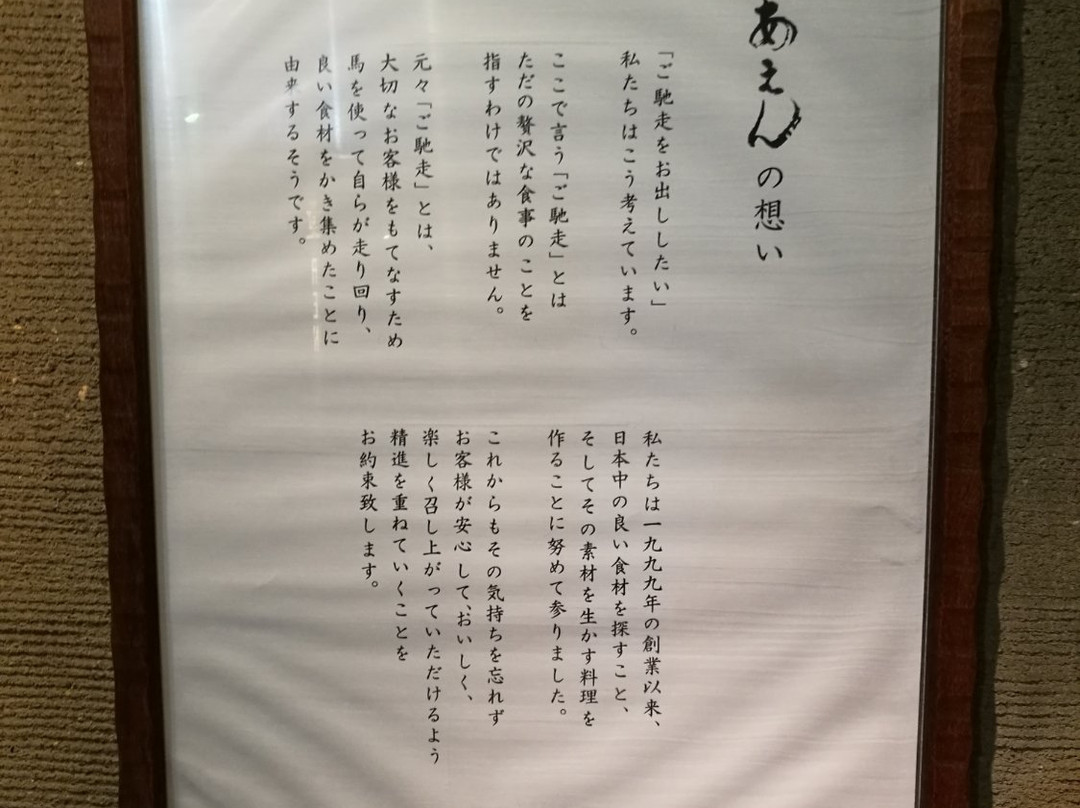 あえんの想い
「ご馳走をお出ししたい」
私たちはこう考えています。
ここで言う「ご馳走」とは
ただの贅沢な食事のことを
指すわけではありません。
元々「ご馳走」とは、
大切なお客様をもてなすため
馬を使って自らが走り回り、
良い食材をかき集めたことに
由来するそうです。
私たちは一九九九年の創業以来、
日本中の良い食材を探すこと、
そしてその素材を生かす料理を
作ることに努めて参りました。
これからもその気持ちを忘れず
お客様が安心して、おいしく、
楽しく召し上がっていただけるよう
精進を重ねていくことを
お約束致します。